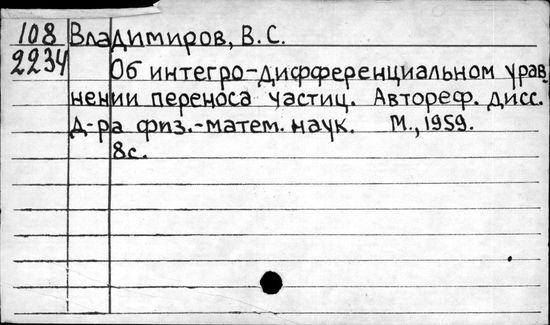 108 Владимиров, В.С.
2234 Об интегро-дифференциальном урав
нении переноса частиц. Автореф. дисс.
д-ра физ.-матем. наук. М., 1959.
8с.